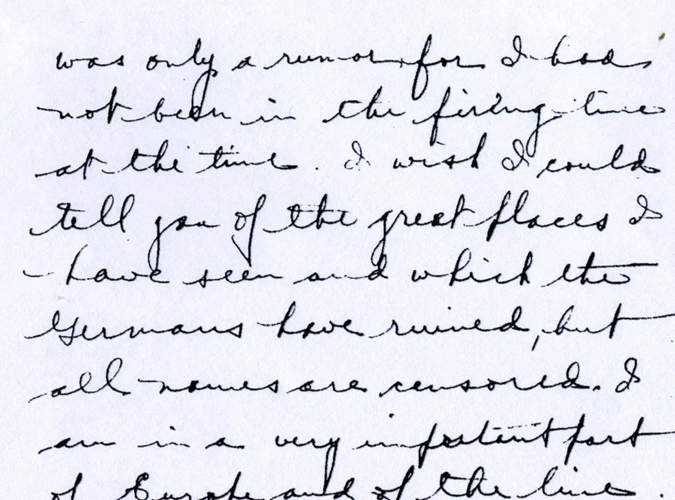 was only a rumor for I had
not been in the firing line
at the time. I wish I could
tell you of the great places I
have seen and which the
Germans have ruined, but
all names are censored. I
am in a very important part
of Europe and of the line.